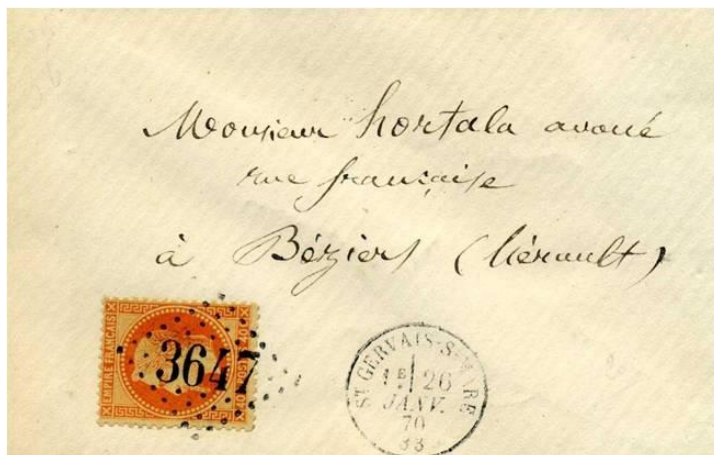 Monsieur hortala avoué
rue française
à Béziers (hérault)
EMPIRE FRANÇAIS
3647
ST GERVAIS-S-MARE
1E 26
JANV.
70
33